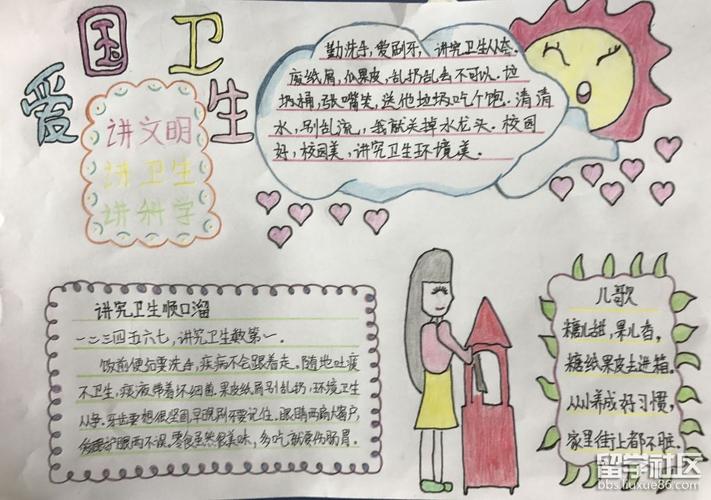 爱国卫生
讲文明
讲卫生
讲科学
勤洗手,爱刷牙,讲究卫生人人夸.
废纸屑,瓜果皮,乱扔乱丢不可以.垃
圾桶,张嘴笑,送他垃圾吃个饱.清清
水,别乱流,我就关掉水龙头.校园
好,校园美,讲究卫生环境美.
讲究卫生顺口溜
一二三四五六七,讲究卫生数第一.
饭前便后要洗手,疾病不会跟着走.随地吐痰
不卫生,痰液带着坏细菌.果皮纸屑别乱扔,环境卫生
从我.牙齿要想很坚固,早晚刷牙要记住.眼睛两扇大窗户,
护眼两不误.零食虽然很美味,多吃就要伤肠胃.
儿歌
糖儿甜,果儿香,
糖纸果皮去进箱.
从小养成好习惯,
家里街上都不脏.
留学社区
bbs.liuxue86.com